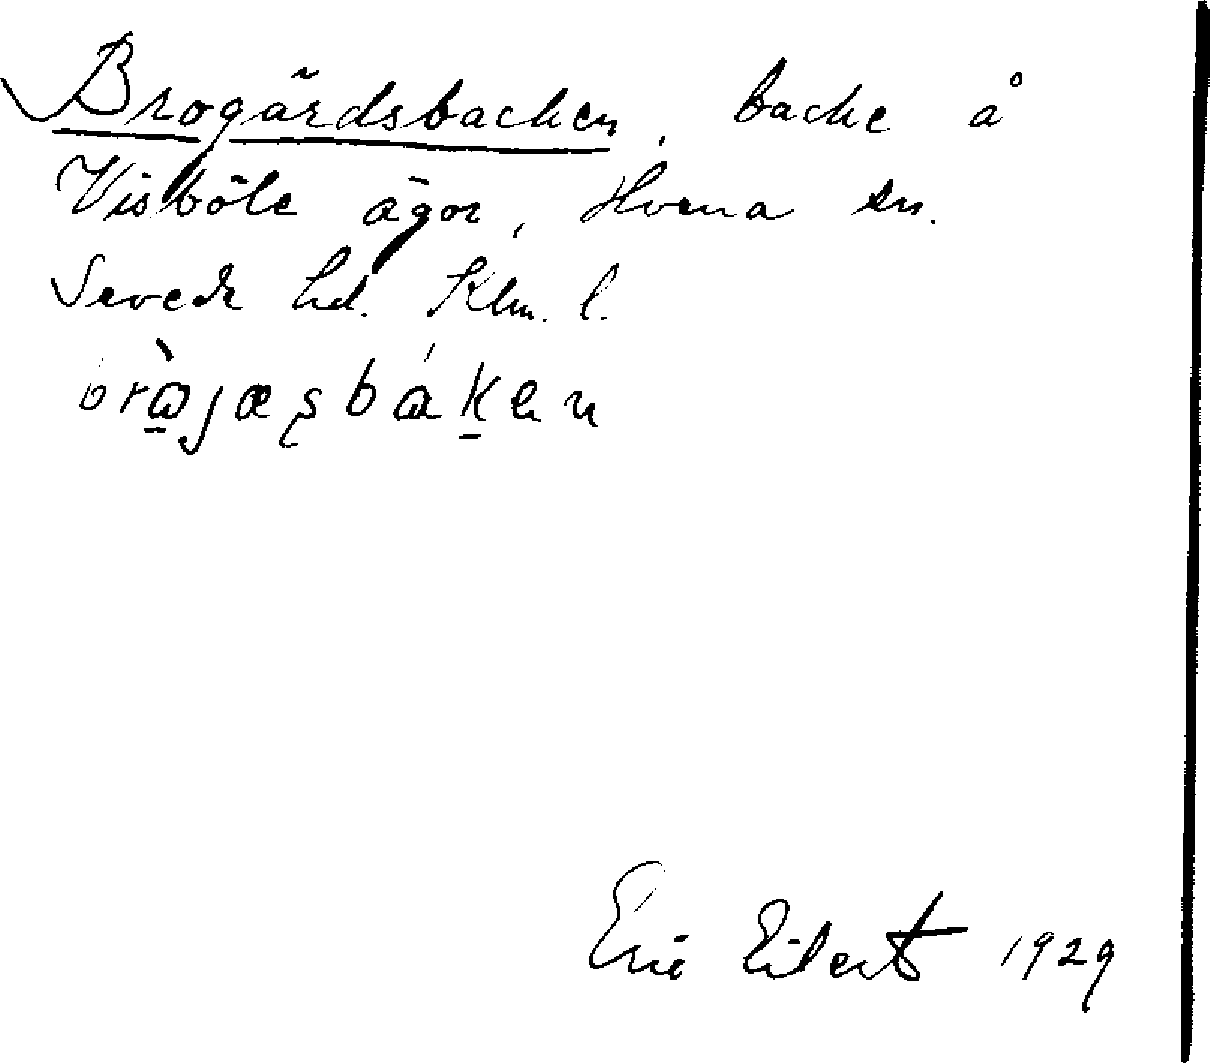 Brogärdsbacken, backe å
Visböle ägor, Hvena sn.
Sevede hd. Klm. l.
bròjæsbákен
Eric Eilert 1929